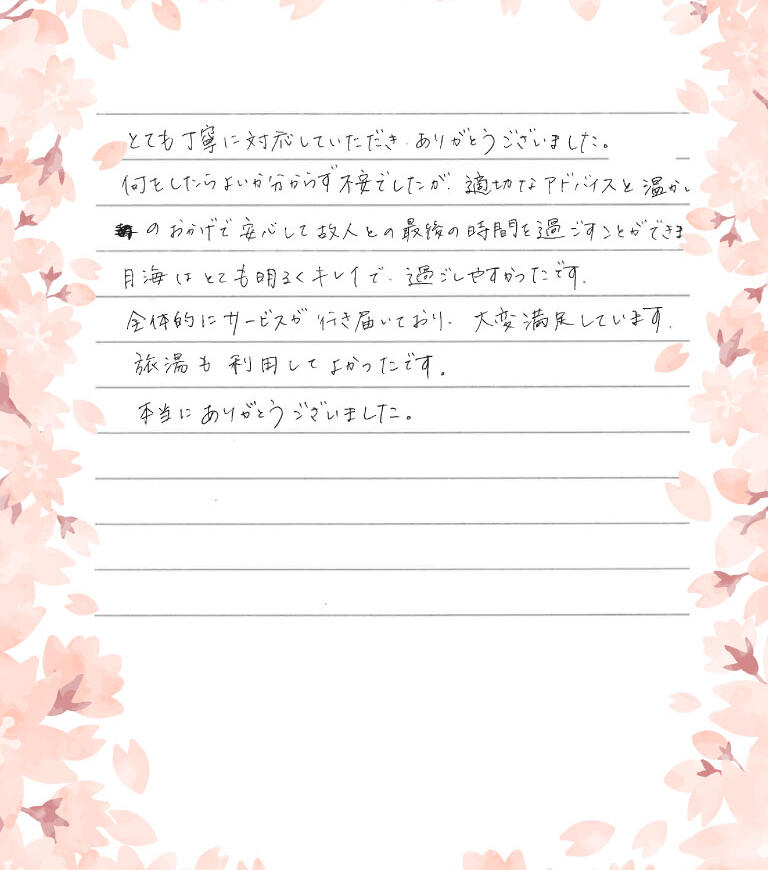 とても丁寧に対応していただき、ありがとうございました。
何をしたらよいか分からず不安でしたが、適切なアドバイスと温かい
のおかげで安心して故人との最後の時間を過ごすことができま
月海はとても明るくキレイで、過ごしやすかったです。
全体的にサービスが行き届いており、大変満足しています。
旅湯も利用してよかったです。
本当にありがとうございました。